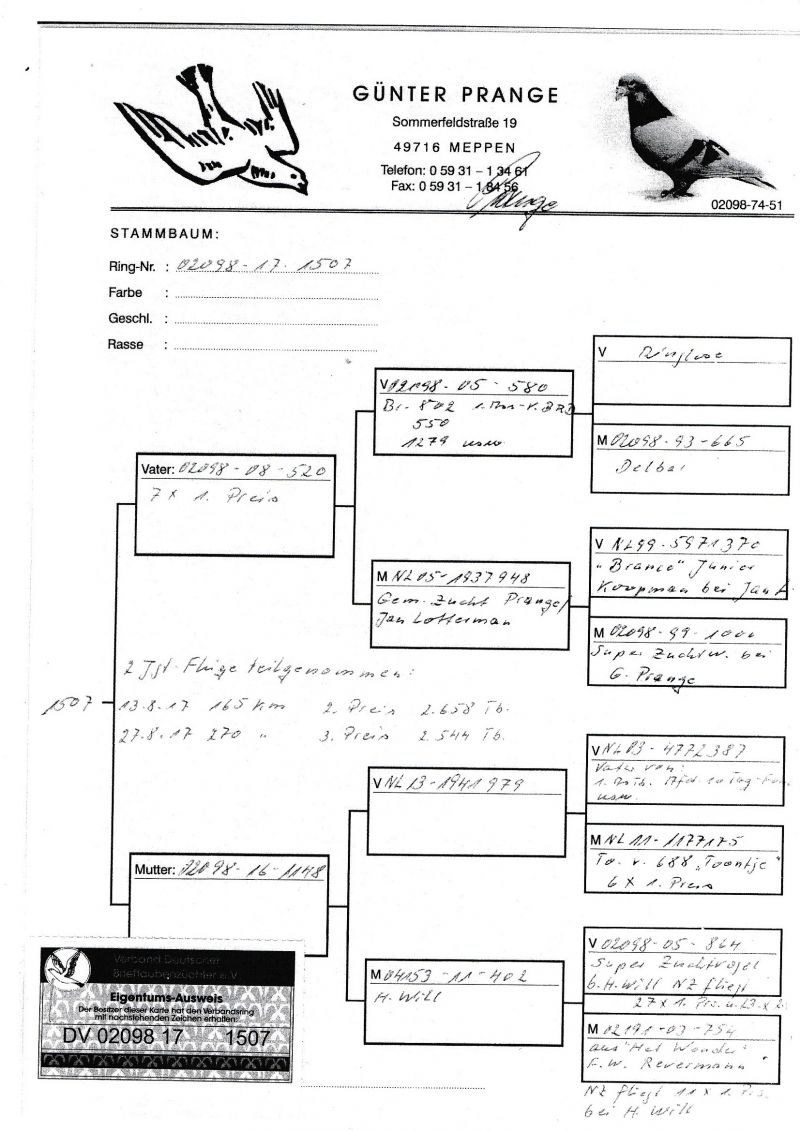 GÜNTER PRANGE
Sommerfeldstraße 19
49716 MEPPEN
Telefon: 0 59 31 – 1 34 61
Fax: 0 59 31 – 1 84 56
Prange
02098-74-51
STAMMBAUM:
Ring-Nr. : 02098-17-1507
Farbe :
Geschl. :
Rasse :
V Ringlose
M 02098-93-665
Delbar
V 02098-05-580
Br. 802 1. Pr. v. BRD
550
1279 usw.
Vater: 02098-08-520
7 x 1. Preis
V NL99-5971370
"Branco" Junior
Koopman bei Jan L.
M NL05-1937948
Gem. Zucht Prange/
Jan Lotterman
M 02098-99-1000
Super Zuchtw. bei
G. Prange
1507
2 Jgt-Flüge teilgenommen:
13.8.17 165 km 2. Preis 2.658 Tb.
27.8.17 270 " 3. Preis 2.544 Tb.
V NL03-4772387
Vater von:
usw.
V NL13-1941979
M NL11-1177175
To. v. 688 "Toontje"
6 x 1. Preis
Mutter: 02098-16-1148
V 02098-05-864
Super Zuchtvogel
b. H. Will NZ fliegt
27 x 1. Pr.
M 04153-11-402
H. Will
M 02191-03-754
aus "Het Wonder"
F.W. Revermann
NZ fliegt 11 x 1. Pr.
bei H. Will
Verband Deutscher
Brieftaubenzüchter e.V.
Eigentums-Ausweis
Der Besitzer dieser Karte hat den Verbandsring
mit nachstehenden Zeichen erhalten:
DV 02098 17 1507